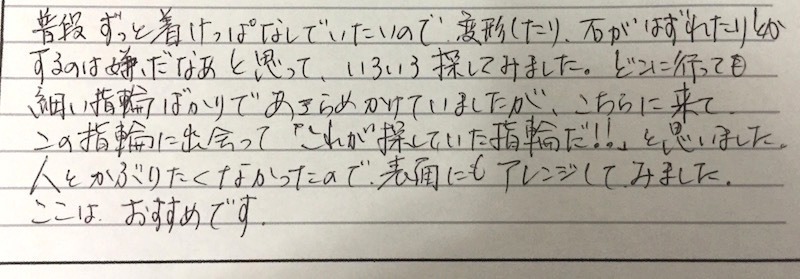 普段 ずっと着けっぱなしでいたいので、変形したり、石がはずれたりとか
するのは嫌だなあと思って、いろいろ探してみました。どこに行っても
細い指輪ばかりであきらめかけていましたが、こちらに来て
この指輪に出会って「これが探していた指輪だ!!」と思いました。
人とかぶりたくなかったので、表面にもアレンジしてみました。
ここは おすすめです。